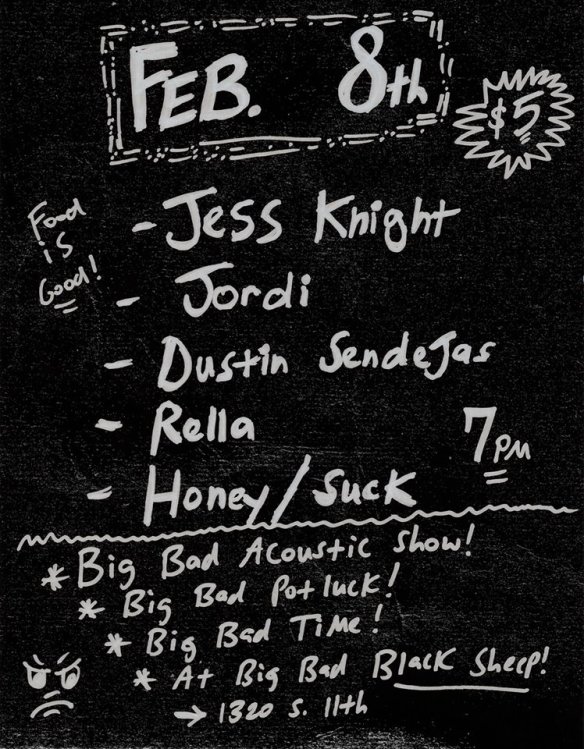 FEB. 8th
$5
Food
is
Good!
- Jess Knight
- Jordi
- Dustin Sendejas
- Rella
7PM
- Honey/Suck
* Big Bad Acoustic Show!
* Big Bad Potluck!
* Big Bad Time!
* At Big Bad Black Sheep!
→ 1320 S. 11th